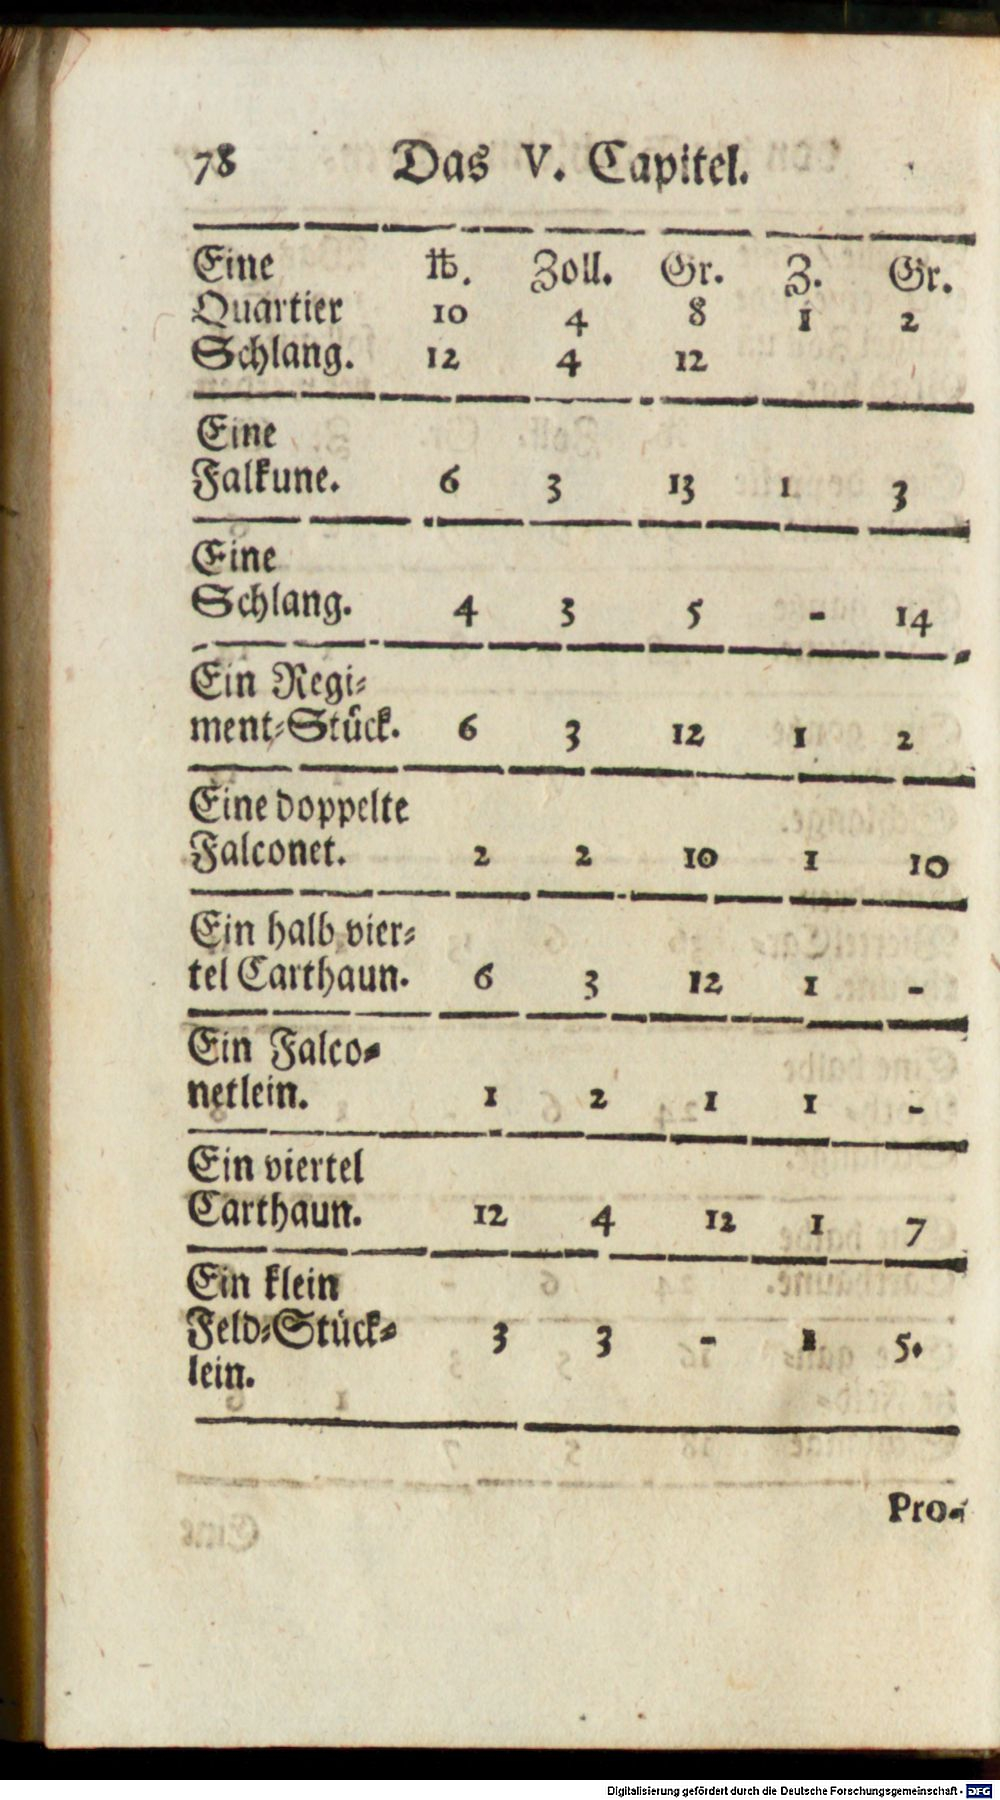 78 Das V. Capitel.
Eine ℔. Zoll. Gr. Z. Gr.
Quartier 10 4 8 1 2
Schlang. 12 4 12
Eine
Falkune. 6 3 13 1 3
Eine
Schlang. 4 3 5 - 14
Ein Regi⸗
ment⸗Stück. 6 3 12 1 2
Eine doppelte
Falconet. 2 2 10 1 10
Ein halb vier⸗
tel Carthaun. 6 3 12 1 -
Ein Falco⸗
netlein. 1 2 1 1 -
Ein viertel
Carthaun. 12 4 12 1 7
Ein klein
Feld⸗Stück⸗ 3 3 - 1 5.
lein.
Pro-
Digitalisierung gefördert durch die Deutsche Forschungsgemeinschaft - DFG